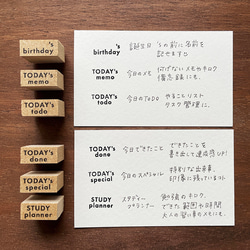 's
birthday
TODAY's
memo
TODAY's
todo
TODAY's
done
TODAY's
special
STUDY
planner
's
birthday
誕生日 'sの前に名前を
TODAY's
memo
今日のメモ
TODAY's
todo
今日のTODO やることリスト
タスク管理に。
TODAY's
done
今日できたこと できたことを
書き出して達成感UP!
TODAY's
special
今日のスペシャル 特別な出来事、
印象に残っている
STUDY
planner
スタディー
プランナー
勉強のキロク、
できた範囲や時間
大人の習い事のメモにも。